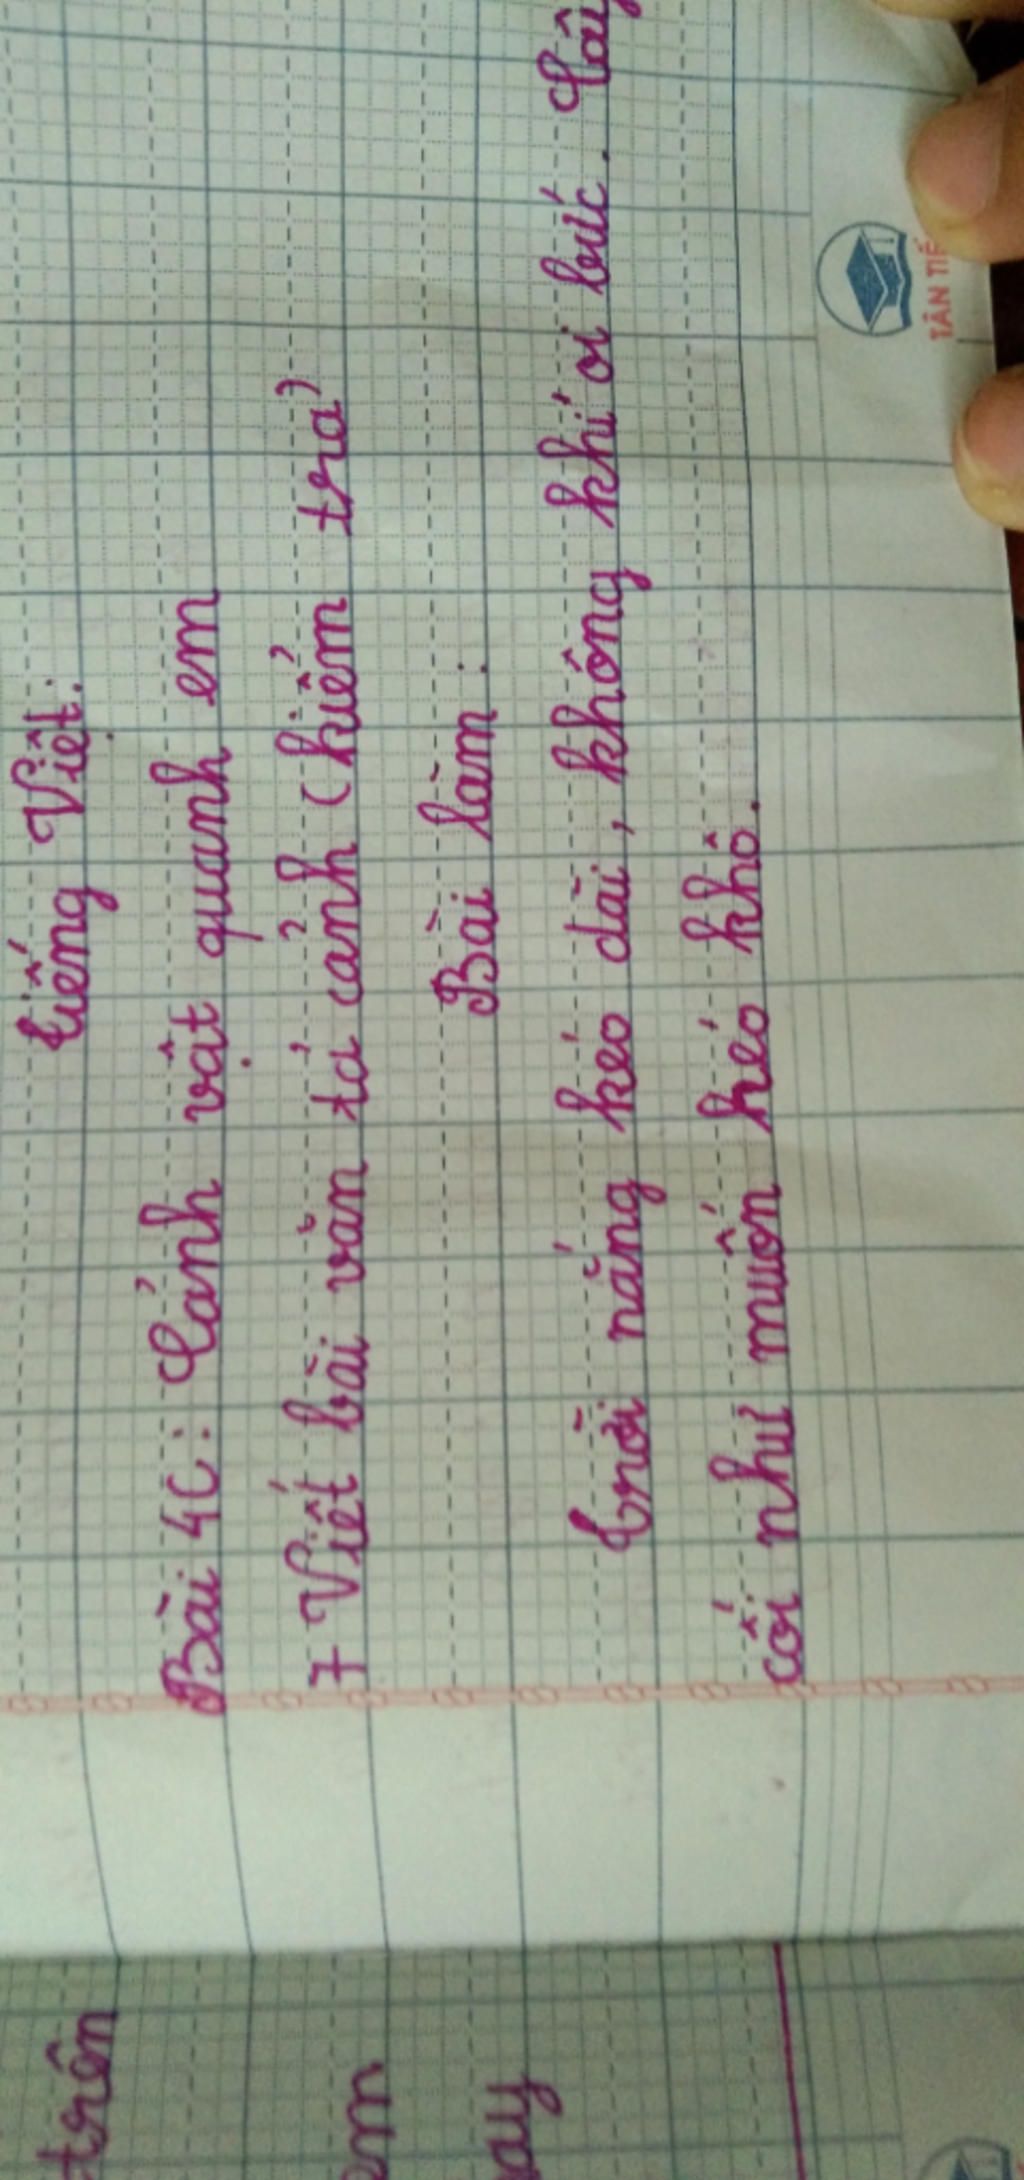 Tiếng Việt:
Bài 4C: Cảnh vật quanh em
7 Viết bài văn tả cảnh (kiểm tra)
Bài làm:
Trời nắng kéo dài, không khí oi bức. Cây
cối như muốn héo khô.
TÂN TIẾ
trên
em
ay